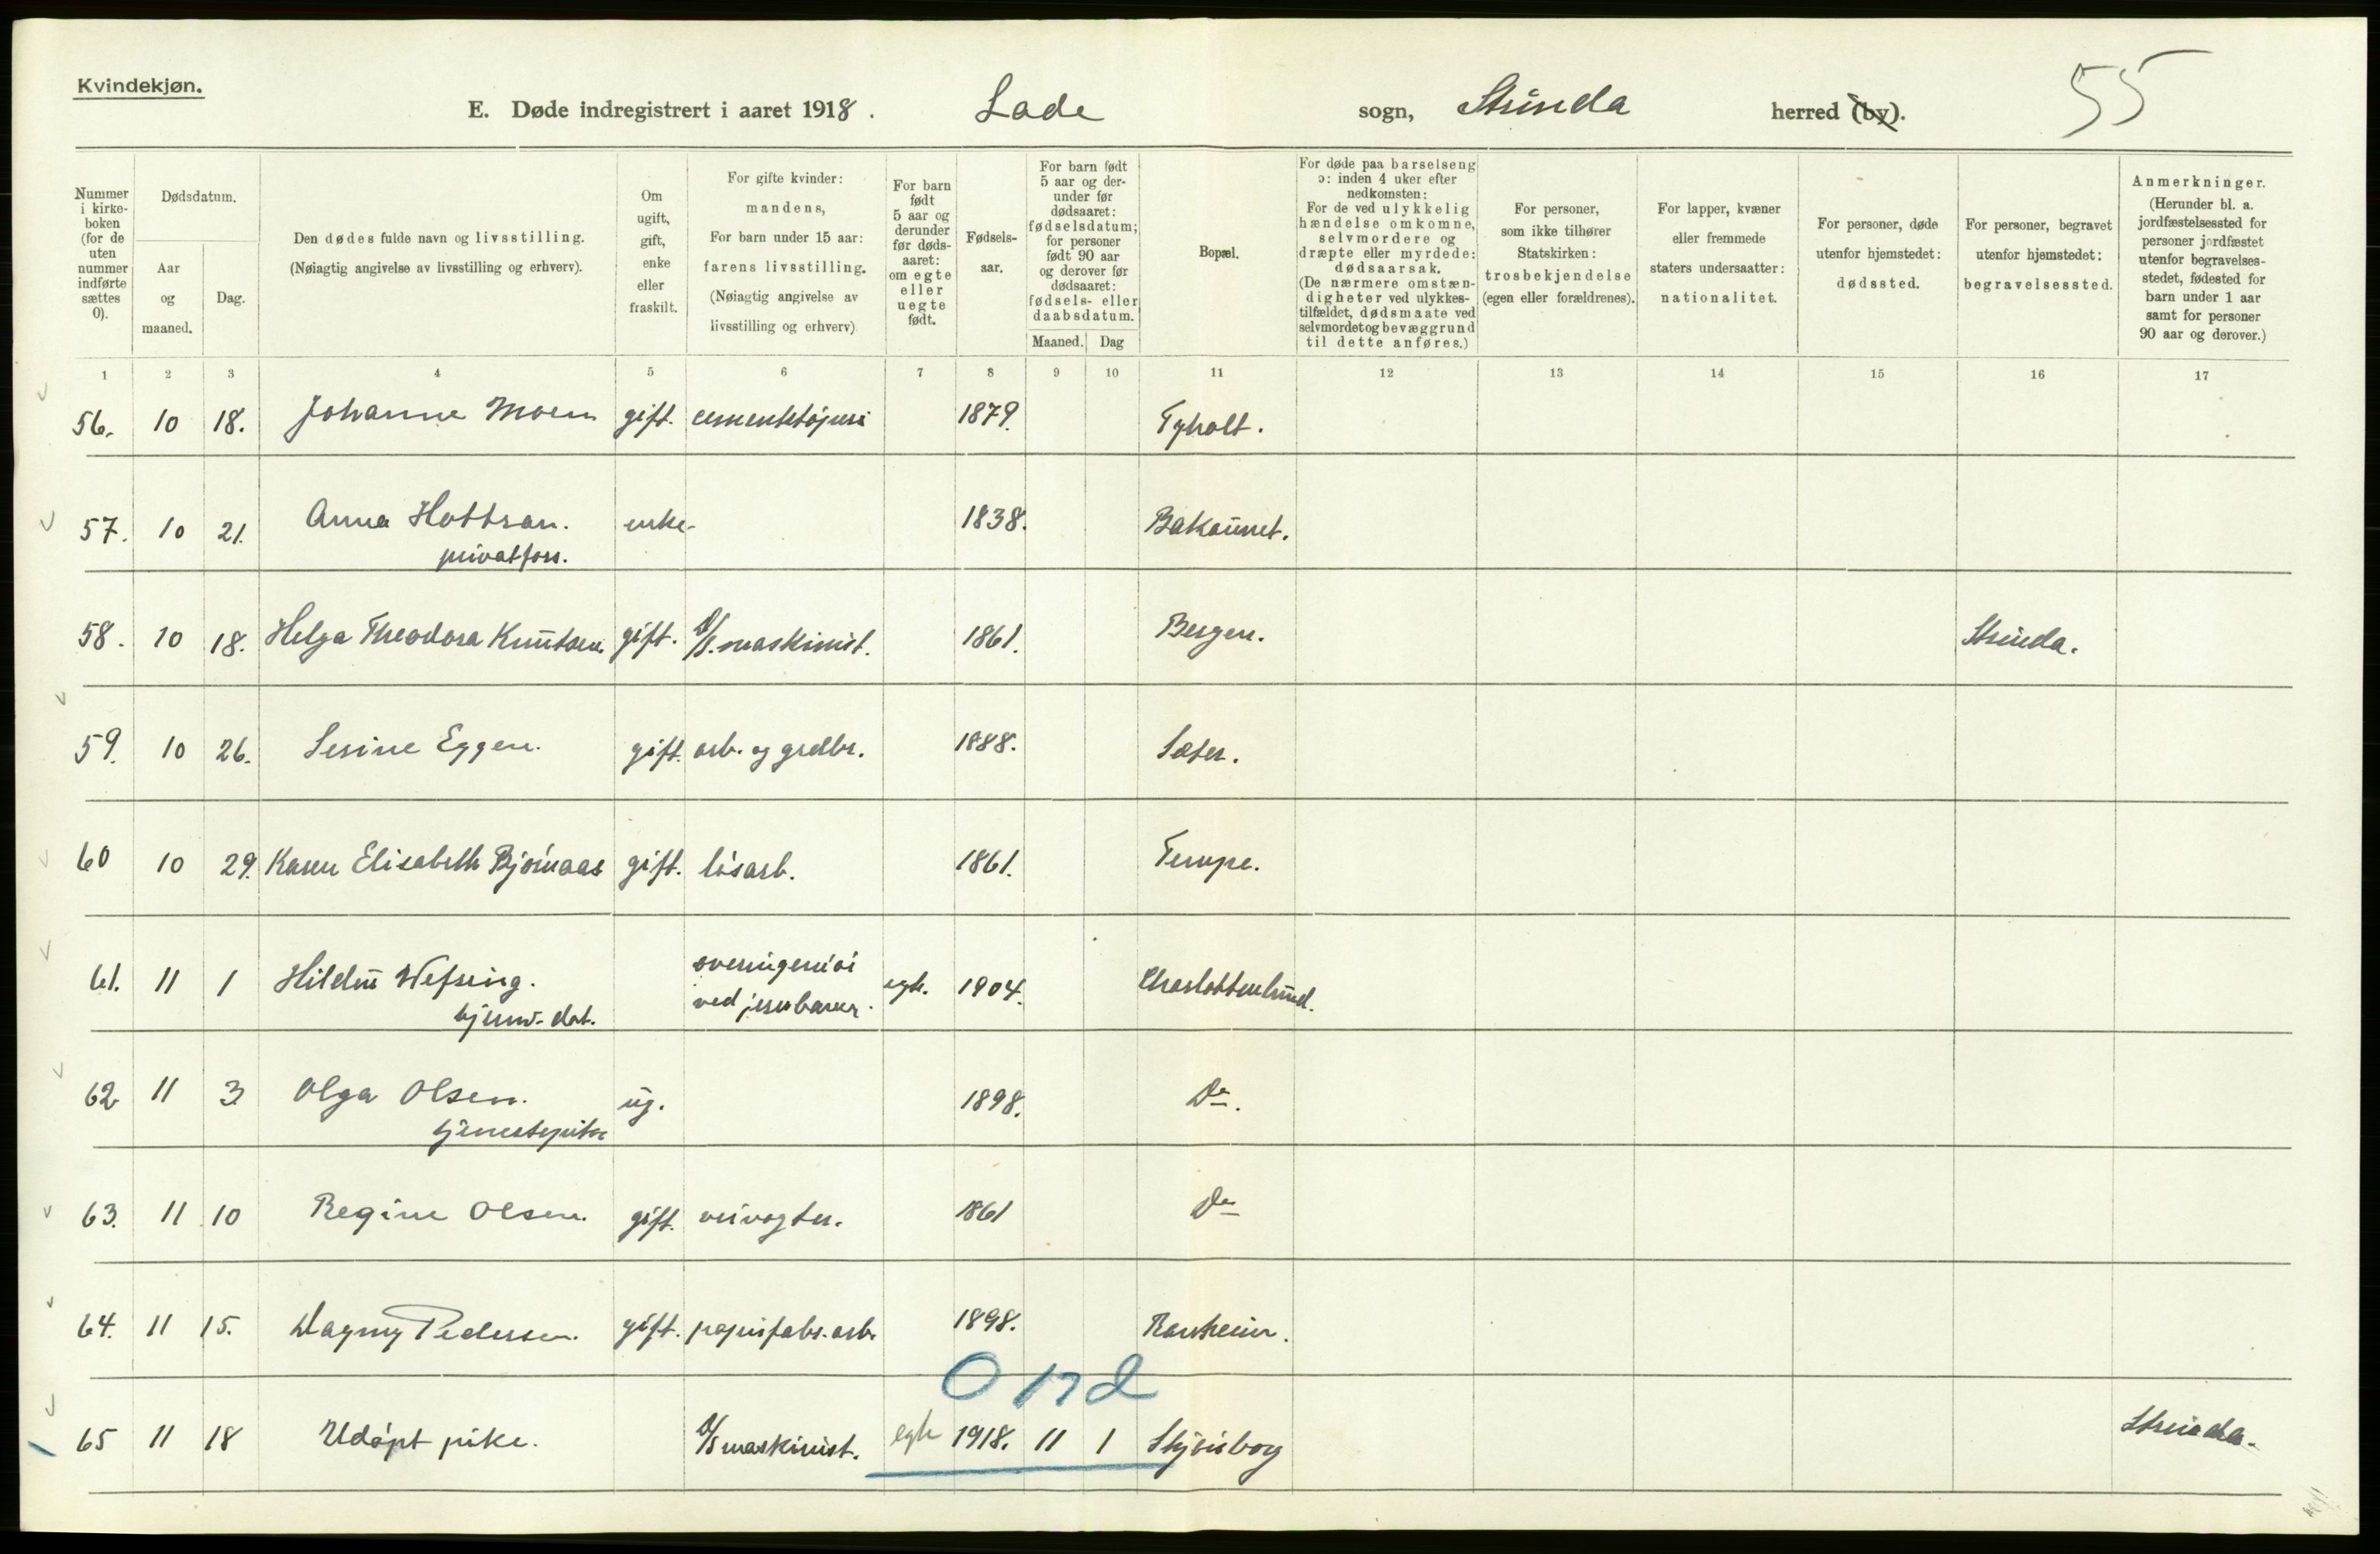 Kvindekjøn.
E. Døde indregistrert i aaret 1918. Lade sogn, Strinda herred (by). 55
Nummer i kirke-boken (for de uten nummer indførte sættes 0).
Dødsdatum.
Aar og maaned.
Dag.
Den dødes fulde navn og livsstilling. (Nøiagtig angivelse av livsstilling og erhverv).
Om ugift, gift, enke eller fraskilt.
For gifte kvinder: mandens, For barn under 15 aar: farens livsstilling. (Nøiagtig angivelse av livsstilling og erhverv)
For barn født 5 aar og derunder før døds-aaret: om egte eller uegte født.
Fødsels-aar.
For barn født 5 aar og der-under før dødsaaret: fødselsdatum; for personer født 90 aar og derover før dødsaaret: fødsels- eller daabsdatum.
Maaned. Dag
Bopæl.
For døde paa barselseng ɔ: inden 4 uker efter nedkomsten: For de ved ulykkelig hændelse omkomne, selvmordere og dræpte eller myrdede: dødsaarsak. (De nærmere omstæn-digheter ved ulykkes-tilfældet, dødsmaate ved selvmord et og bevæggrund til dette anføres.)
For personer, som ikke tilhører Statskirken: trosbekjendelse (egen eller forældrenes).
For lapper, kvæner eller fremmede staters undersaatter: nationalitet.
For personer, døde utenfor hjemstedet: dødssted.
For personer, begravet utenfor hjemstedet: begravelsessted.
Anmerkninger. (Herunder bl. a. jordfæstelsessted for personer jordfæstet utenfor begravelses-stedet, fødested for barn under 1 aar samt for personer 90 aar og derover.)
1 2 3 4 5 6 7 8 9 10 11 12 13 14 15 16 17
56. 10 18. Johanne Moen gift. cementstøperi 1879. Tyholt.
57. 10 21. Anna Hottran. enke 1838. Bakaunet.
privatfors.
58. 10 18. Helga Theodora Knutsen gift. d/s. maskinist. 1861. Bergen. Strinda.
59. 10 26. Serine Eggen. gift. arb. og grdbr. 1888. Sæter.
60 10 29. Karen Elisabeth Bjørnaas gift. løsarb. 1861. Tempe.
61. 11 1 Hildur Wefring. overingeniør egte. 1904. Charlottenlund.
hjemv. dat. ved jernbanen.
62 11 3 Olga Olsen. ug. 1898. Do.
tjenestepike
63. 11 10 Regine Olsen. gift. veivogter. 1861 Do
64. 11 15. Dagny Pedersen. gift. papirfabr. arb. 1898. Ranheim.
0 17 d
65 11 18 Udøpt pike. d/s maskinist. egte 1918. 11 1 Strinda.